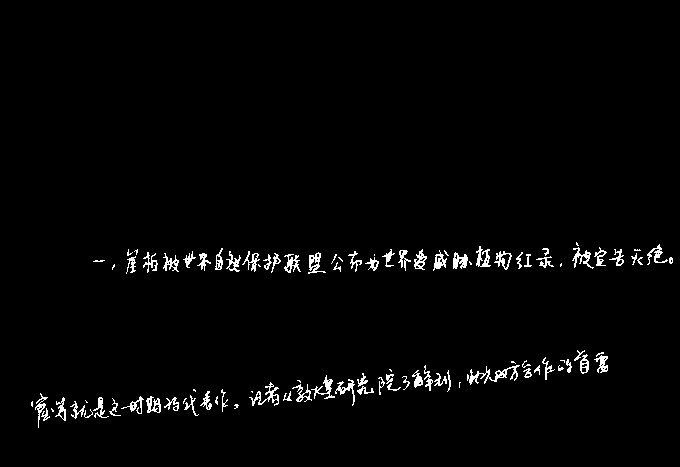 一，崖柏被世界自然保护联盟公布为世界受威胁植物红录，被宣告灭绝。
窟等就是这一时期的代表作。记者从敦煌研究院了解到，此次双方合作的首需